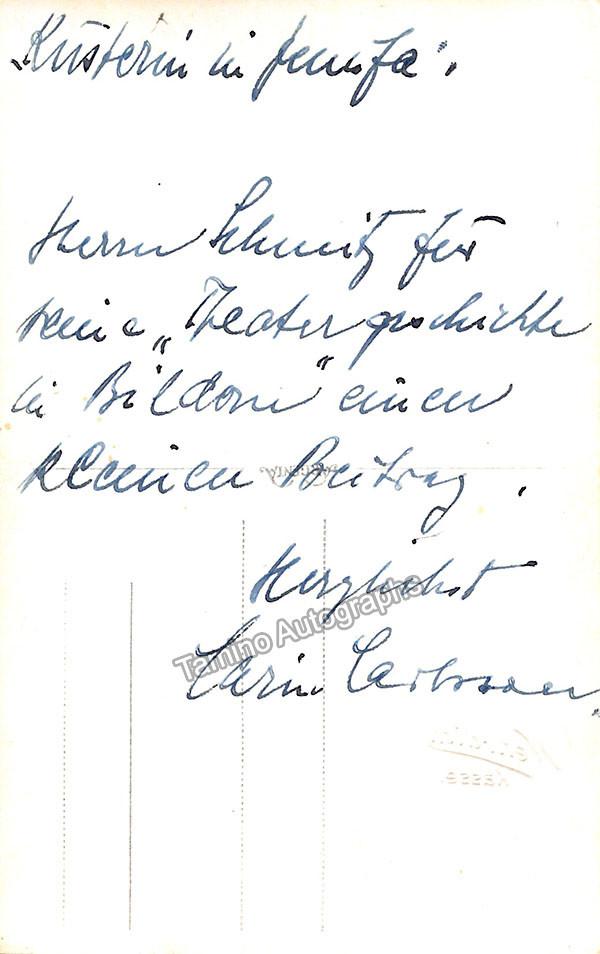 „Küsterin in Jenufa".
Herrn Schmitz für
seine „Theatergeschichte
in Bildern" einen
kleinen Beitrag.
Herzlichst
Carin Carlsson
Tamino Autographs